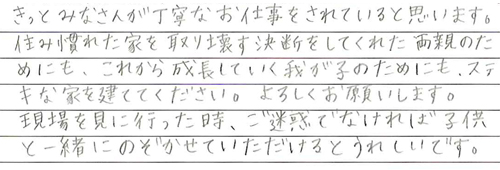 きっとみなさんが丁寧なお仕事をされていると思います。
住み慣れた家を取り壊す決断をしてくれた両親のた
めにも、これから成長していく我が子のためにも、ステ
キな家を建ててください。よろしくお願いします。
現場を見に行った時、ご迷惑でなければ子供
と一緒にのぞかせていただけるとうれしいです。